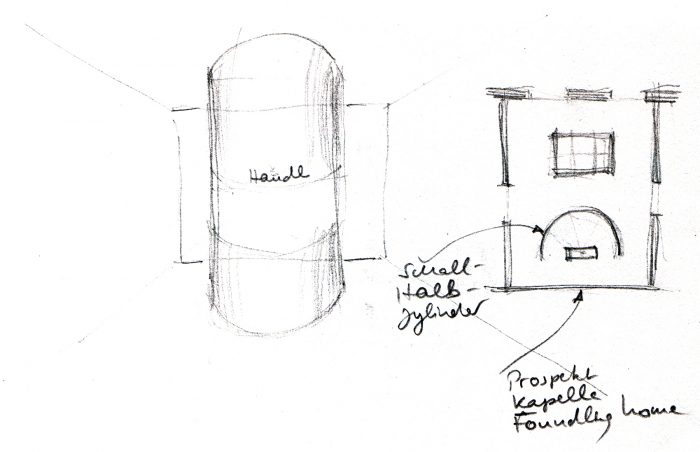 Händl
Schall-
Halb-
zylinder
Prospekt
Kapelle
Foundling home